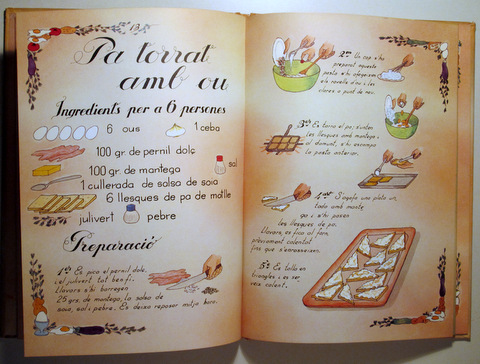 Pa torrat
amb ou
Ingredients per a 6 persones
6 ous
1 ceba
100 gr. de pernil dolç
sal
100 gr. de mantega
1 cullerada de salsa de soia
6 llesques de pa de motlle
julivert
pebre
Preparació
1er Es pica el pernil dolç
i el julivert tot ben fi.
Llavors s'hi barregen
25 grs. de mantega, la salsa de
soia, sal i pebre. Es deixa reposar mitja hora.
2on Un cop s'ha
preparat aquesta
pasta s'hi afegeixen
els rovells d'ou i les
clares a punt de neu.
3er Es torra el pa; s'unten
les llesques amb mantega i,
al damunt, s'hi escampa
la pasta anterior.
4art S'agafa una plata un-
tada amb mante-
ga i s'hi posen
les llesques de pa.
Llavors, es fica al forn,
prèviament calentat
fins que s'enrosseixen.
5è Es talla en
triangles i es ser-
veix calent.